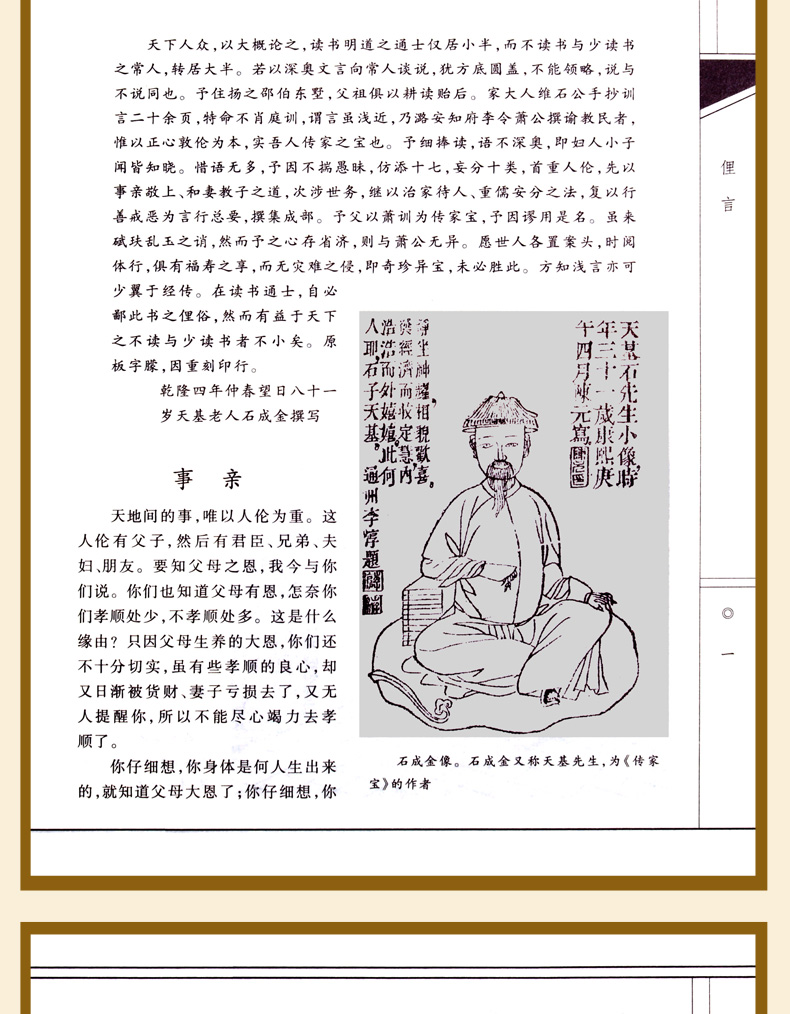 天下人众,以大概论之,读书明道之通士仅居小半,而不读书与少读书
之常人,转居大半。若以深奥文言向常人谈说,犹方底圆盖,不能领略,说与
不说同也。予住扬之邵伯东墅,父祖俱以耕读贻后。家大人维石公手抄训
言二十余页,特命不肖庭训,谓言虽浅近,乃潞安知府李令萧公撰谕教民者,
惟以正心敦伦为本,实吾人传家之宝也。予细捧读,语不深奥,即妇人小子
闻皆知晓。惜语无多,予因不揣愚昧,仿添十七,妄分十类,首重人伦,先以
事亲敬上、和妻教子之道,次涉世务,继以治家待人、重儒安分之法,复以行
善戒恶为言行总要,撰集成部。予父以萧训为传家宝,予因谬用是名。虽来
碔玞乱玉之诮,然而予之心存省济,则与萧公无异。愿世人各置案头,时阅
体行,俱有福寿之享,而无灾难之侵,即奇珍异宝,未必胜此。方知浅言亦可
少翼于经传。在读书通士,自必
鄙此书之俚俗,然而有益于天下
之不读与少读书者不小矣。原
板字朦,因重刻印行。
乾隆四年仲春望日八十一
岁天基老人石成金撰写
事 亲
天地间的事,唯以人伦为重。这
人伦有父子,然后有君臣、兄弟、夫
妇、朋友。要知父母之恩,我今与你
们说。你们也知道父母有恩,怎奈你
们孝顺处少,不孝顺处多。这是什么
缘由?只因父母生养的大恩,你们还
不十分切实,虽有些孝顺的良心,却
又日渐被货财、妻子亏损去了,又无
人提醒你,所以不能尽心竭力去孝
顺了。
你仔细想,你身体是何人生出来
的,就知道父母大恩了;你仔细想,你
天基石先生小像,時
年三十一歲康熙庚
午四月陳元寫
靜坐神耀,相貌歡喜。
與經濟而收定慧,內
浩浩而外嬉嬉。此何
人耶,石子天基。通州李惇題
石成金像。石成金又称天基先生,为《传家
宝》的作者
俚言
◎
一